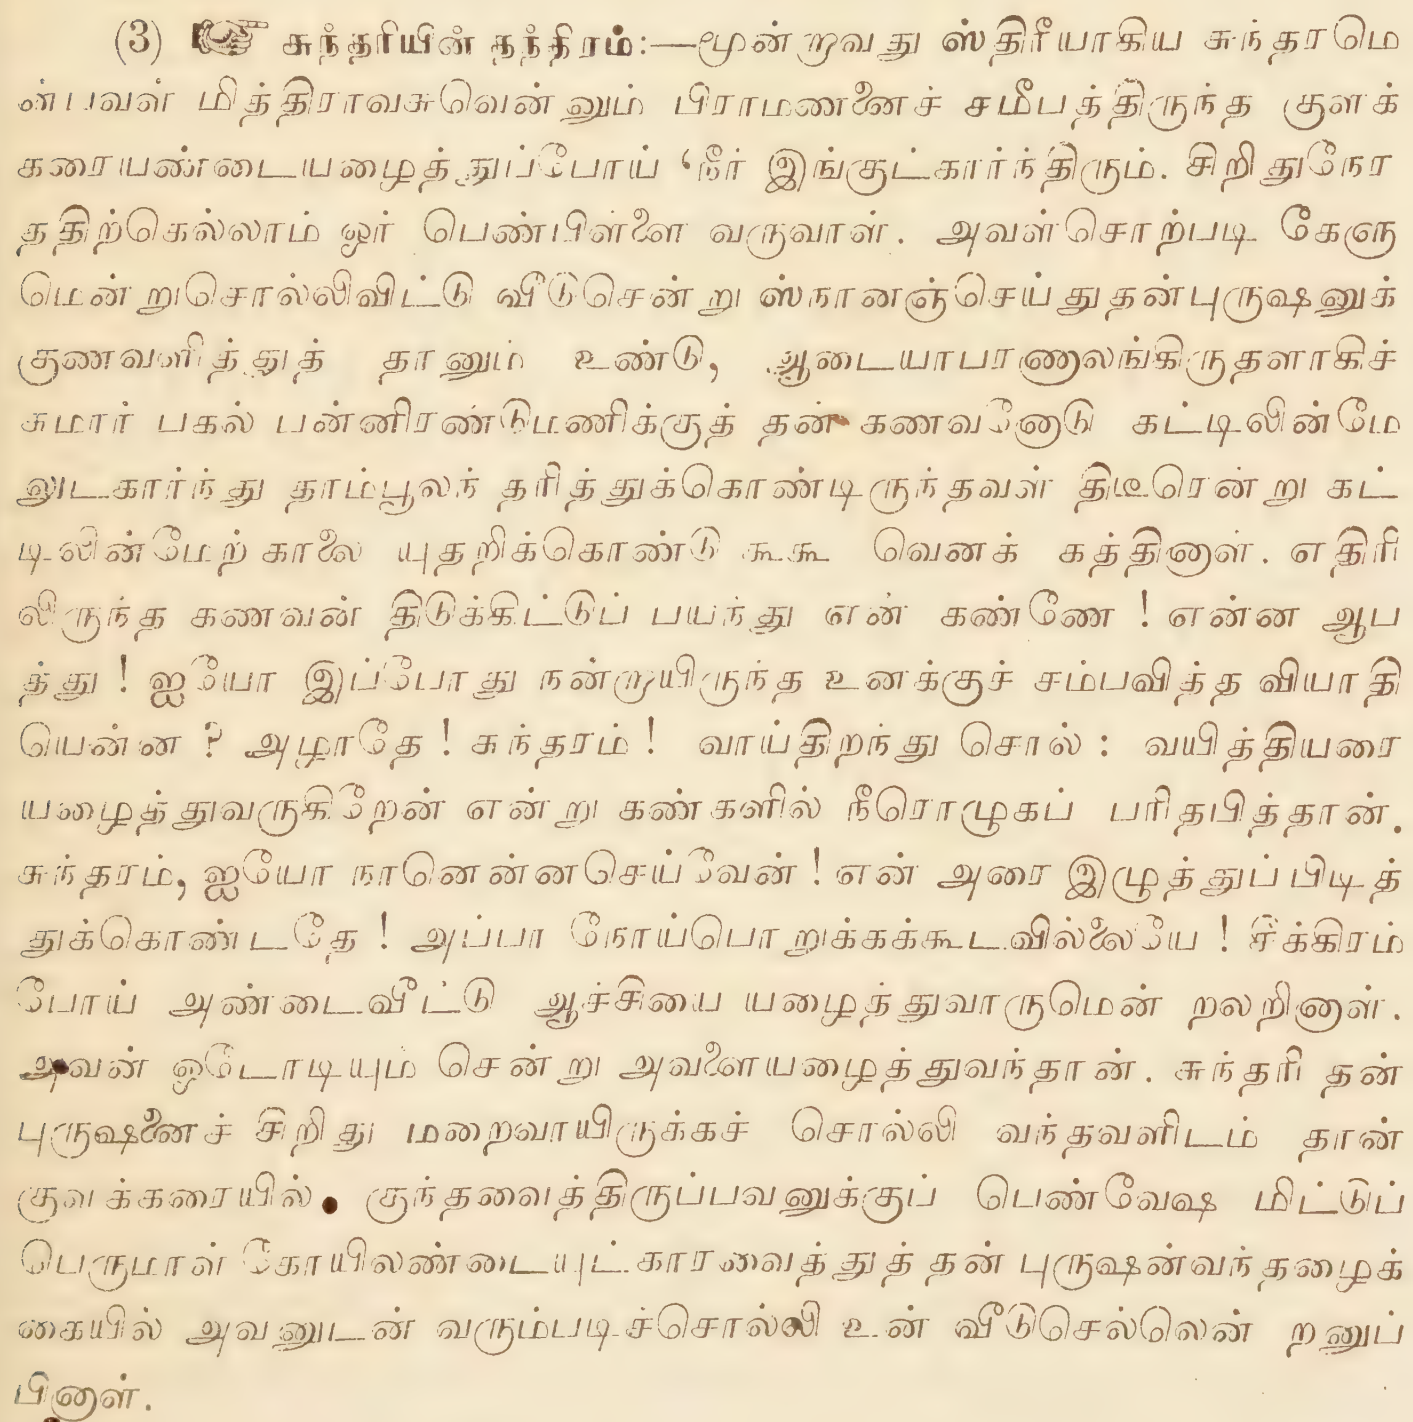 (3) ☞ சுந்தரியின் தந்திரம்:—மூன்றாவது ஸ்திரீயாகிய சுந்தரமெ
ன்பவள் மித்திராவசுவென்னும் பிராமணனைச் சமீபத்திருந்த குளக்
கரையண்டையழைத்துப்போய் ‘நீர் இங்குட்கார்ந்திரும். சிறிதுநேர
ததிற்கெல்லாம் ஓர் பெண்பிள்ளை வருவாள். அவள்சொற்படி கேளு
மென்றுசொல்லிவிட்டு வீடுசென்று ஸ்நானஞ்செய்துதன்புருஷனுக்
குணவளித்துத் தானும் உண்டு, ஆடையாபரணாலங்கிருதளாகிச்
சுமார் பகல் பன்னிரண்டுமணிக்குத் தன் கணவனோடு கட்டிலின்மே
லுடகார்ந்து தாம்பூலந் தரித்துக்கொண்டிருந்தவள் திடீரென்று கட்
டிலின்மேற் காலை யுதறிக்கொண்டு கூகூ வெனக் கத்தினாள். எதிரி
லிருந்த கணவன் திடுக்கிட்டுப் பயந்து என் கண்ணே! என்ன ஆப
த்து! ஐயோ இப்போது நன்றாயிருந்த உனக்குச் சம்பவித்த வியாதி
யென்ன? அழாதே! சுந்தரம்! வாய்திறந்து சொல்: வயித்தியரை
யழைத்துவருகிறேன் என்று கண்களில் நீரொழுகப் பரிதபித்தான்.
சுந்தரம், ஐயோ நானென்னசெய்வேன்! என் அரை இழுத்துப்பிடித்
துக்கொண்டதே! அப்பா நோய்பொறுக்கக்கூடவில்லையே! சீக்கிரம்
போய் அண்டைவீட்டு ஆச்சியை யழைந்துவாருமென் றலறினாள்.
அவன் ஓடோடியும் சென்று அவளையழைத்துவந்தான். சுந்தரி தன்
புருஷனைச் சிறிது மறைவாயிருக்கச் சொல்லி வந்தவளிடம் தான்
குளக்கரையில் குந்தவைத்திருப்பவனுக்குப் பெண்வேஷ மிட்டுப்
பெருமாள் கோயிலண்டையுட்காரவைத்துத் தன் புருஷன்வந்தழைக்
கையில் அவனுடன் வரும்படிச்சொல்லி உன் வீடுசெல்லென் றனுப்
பினாள்.